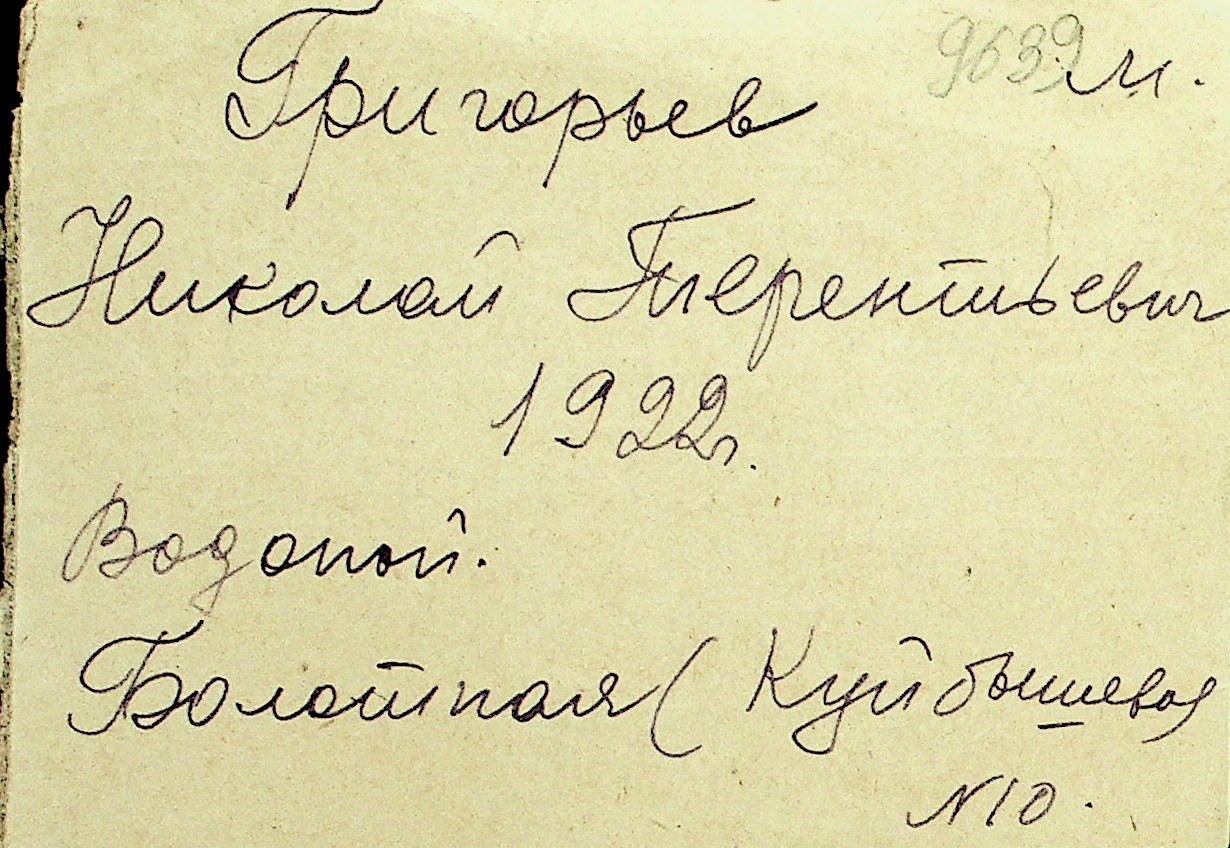 9639 м.
Григорьев
Николай Терентьевич
1922г.
Водопой.
Болотная (Куйбышева)
N10.